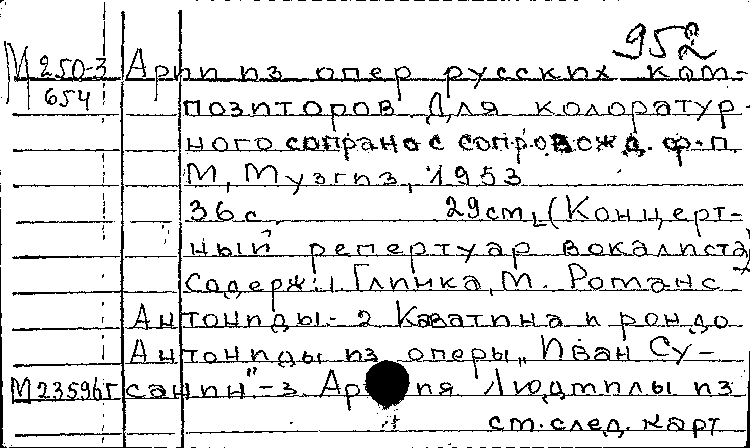 952
М 250-3 Арии из опер русских ком-
654 позиторов для колоратур-
ного сопрано с сопровожд. ф-п.
М, Музгиз, 1953
36 с. 29 см. (Концерт-
ный репертуар вокалиста)
Содерж: 1 Глинка, М. Романс
Антониды- 2 Каватина и рондо
Антониды из оперы „Иван Су-
М23596г санин"-3. Ария Людмилы из
см. след. карт